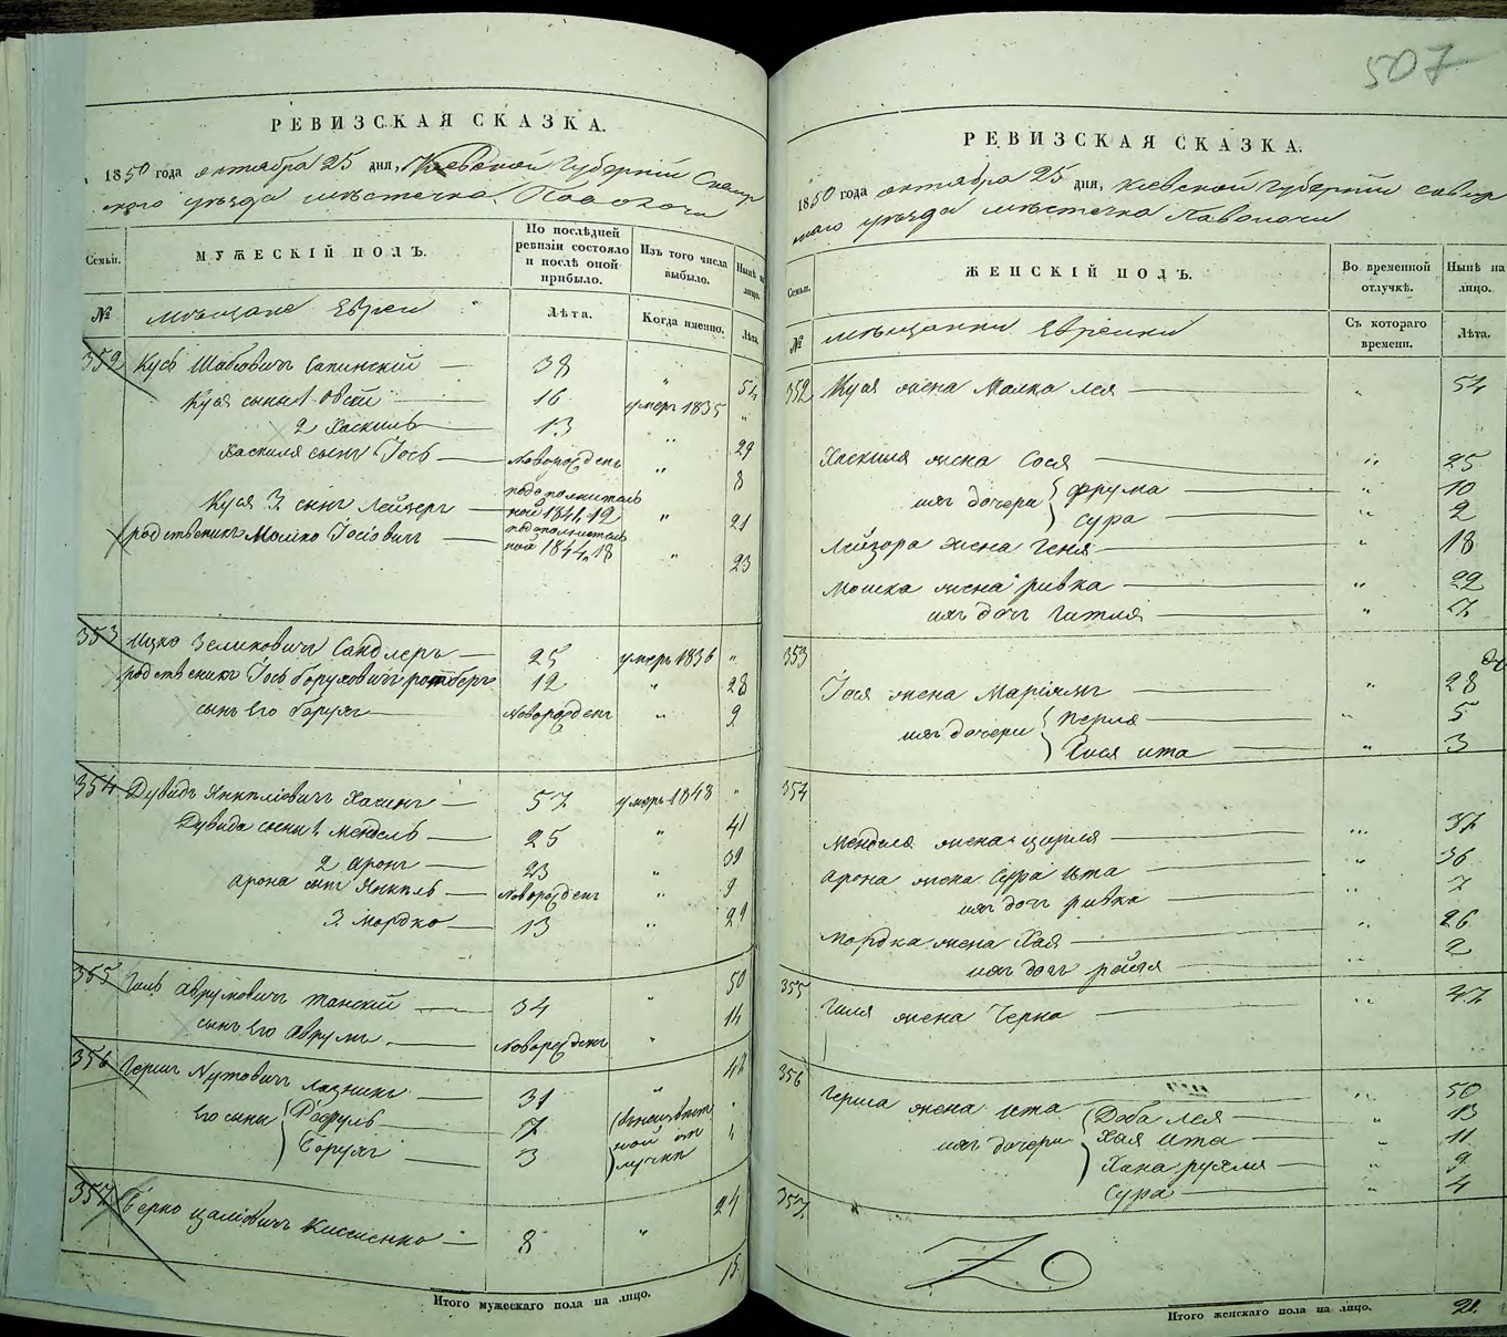 507
РЕВИЗСКАЯ СКАЗКА.
1850 года октября 25 дня, Киевской Губерніи Сквир
ского уѣзда мѣстечка Паволочи
Семьи.
МУЖЕСКІЙ ПОЛЪ.
По послѣдней ревизіи состояло и послѣ оной прибыло.
Изъ того числа выбыло.
Нынѣ на лицо.
№
мѣщане Евреи
Лѣта.
Когда именно.
Лѣта.
352 Кусь Шабсовичъ Сапинскій 38 " 54
Куся сыны 1 Овсій 16 умеръ 1835 "
2 Хаскиль 13 " 29
Хаскиля сынъ Іось новорожденъ " 8
Куся 3 сынъ Лейзеръ по дополнитель
ной 1844 12 " 21
родственикъ Мошко Іосіовичъ по дополнитель
ной 1844 18 " 23
353 Ицко Зеликовичъ Сандлеръ 25 умеръ 1836 "
родственикъ Іось Боруховичъ ротбергъ 12 " 28
сынъ Его борухъ новорожденъ " 9
354 Дувидъ Янкелiовичъ Хагинъ 57 умеръ 1848 "
Дувида сыны 1 Мендель 25 " 41
2 аронъ 23 " 39
арона сынъ Янкель новорожденъ " 9
3 мордко 13 " 29
355 Гиль Аврумовичъ танскій 34 " 50
сынъ Его Аврумъ новорожденъ " 14
356 Гершъ Нутовичъ 31 " 48
Его сыны 7 "
Борухъ 3 "
357 Берко 8 " 24
15
Итого мужескаго пола на лицо.
РЕВИЗСКАЯ СКАЗКА.
1850 года октября 25 дня, Киевской Губерніи Сквир
ского уѣзда мѣстечка Паволочи
Семьи.
ЖЕНСКІЙ ПОЛЪ.
Во временной отлучкѣ.
Нынѣ на лицо.
№
мѣщанки Еврейки
Съ котораго времени.
Лѣта.
352 Куся жена Малка лея " 54
Хаскиля жена Сося " 25
ихъ дочери фрума " 10
Сура " 2
Лейзора жена Геня " 18
Мошка жена ривка " 22
ихъ дочь Гитля "
353
Іося жена Маріямъ " 28
ихъ дочери перля " 5
Хися ита " 3
354
Менделя жена цирля " 37
арона жена Сура ита " 36
ихъ дочь ривка " 7
мордка жена Хая " 26
ихъ дочь рейзя " 2
355 Гиля жена Черна " 47
356 Герша жена ита " 50
ихъ дочери Доба лея " 13
Хая ита " 11
Хана рухля " 9
Сура " 4
357
Итого женскаго пола на лицо.
21.